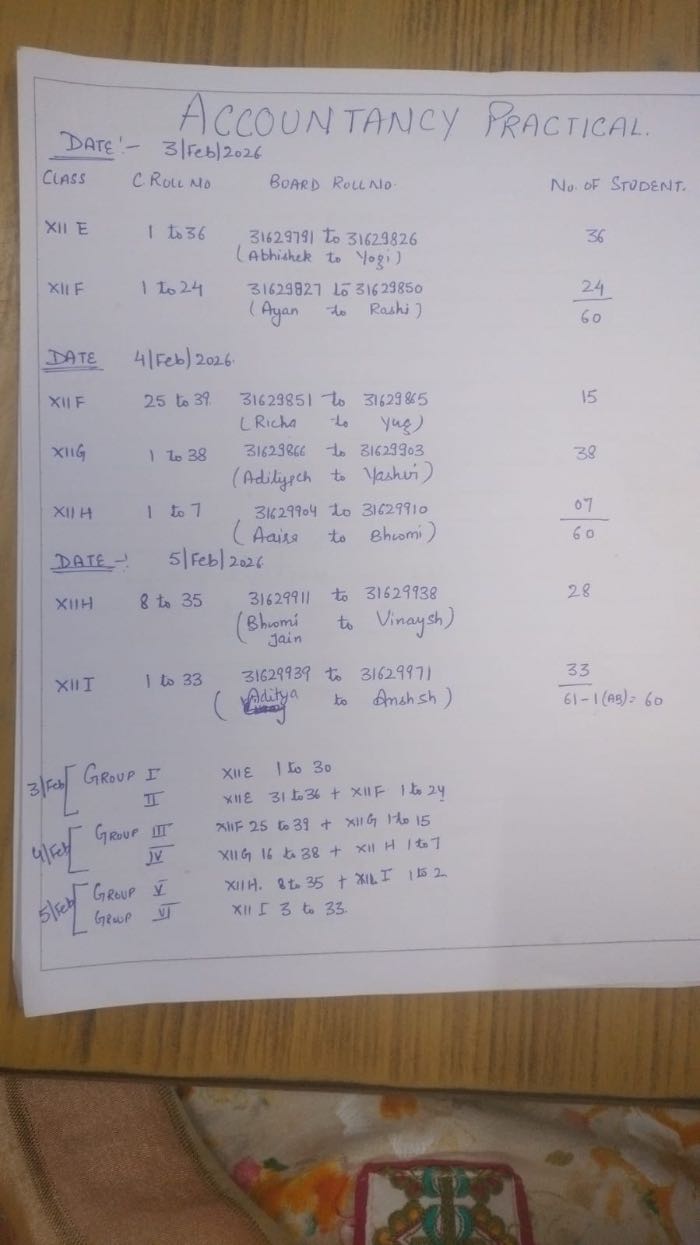 ACCOUNTANCY PRACTICAL.
DATE:- 3/Feb/2026
CLASS C ROLL NO BOARD ROLL NO. No. OF STUDENT.
XII E 1 to 36 31629791 to 31629826 36
(Abhishek to Yogi)
XII F 1 to 24 31629827 to 31629850 24
(Ayan to Rashi) 60
DATE 4/Feb/2026.
XII F 25 to 39 31629851 to 31629865 15
(Richa to Yug)
XII G 1 to 38 31629866 to 31629903 38
( to Yashvi)
XII H 1 to 7 31629904 to 31629910 07
( to Bhoomi) 60
DATE -: 5/Feb/2026
XII H 8 to 35 31629911 to 31629938 28
(Bhoomi to Vinaysh)
Jain
XII I 1 to 33 31629939 to 31629971 33
(Aditya to Ansh sh) 61-1(AB)= 60
3/Feb [ GROUP I XII E 1 to 30
II XII E 31 to 36 + XII F 1 to 24
4/Feb [ GROUP III XII F 25 to 39 + XII G 1 to 15
IV XII G 16 to 38 + XII H 1 to 7
5/Feb [ GROUP V XII H. 8 to 35 + XII I 1 to 2
GROUP VI XII I 3 to 33.